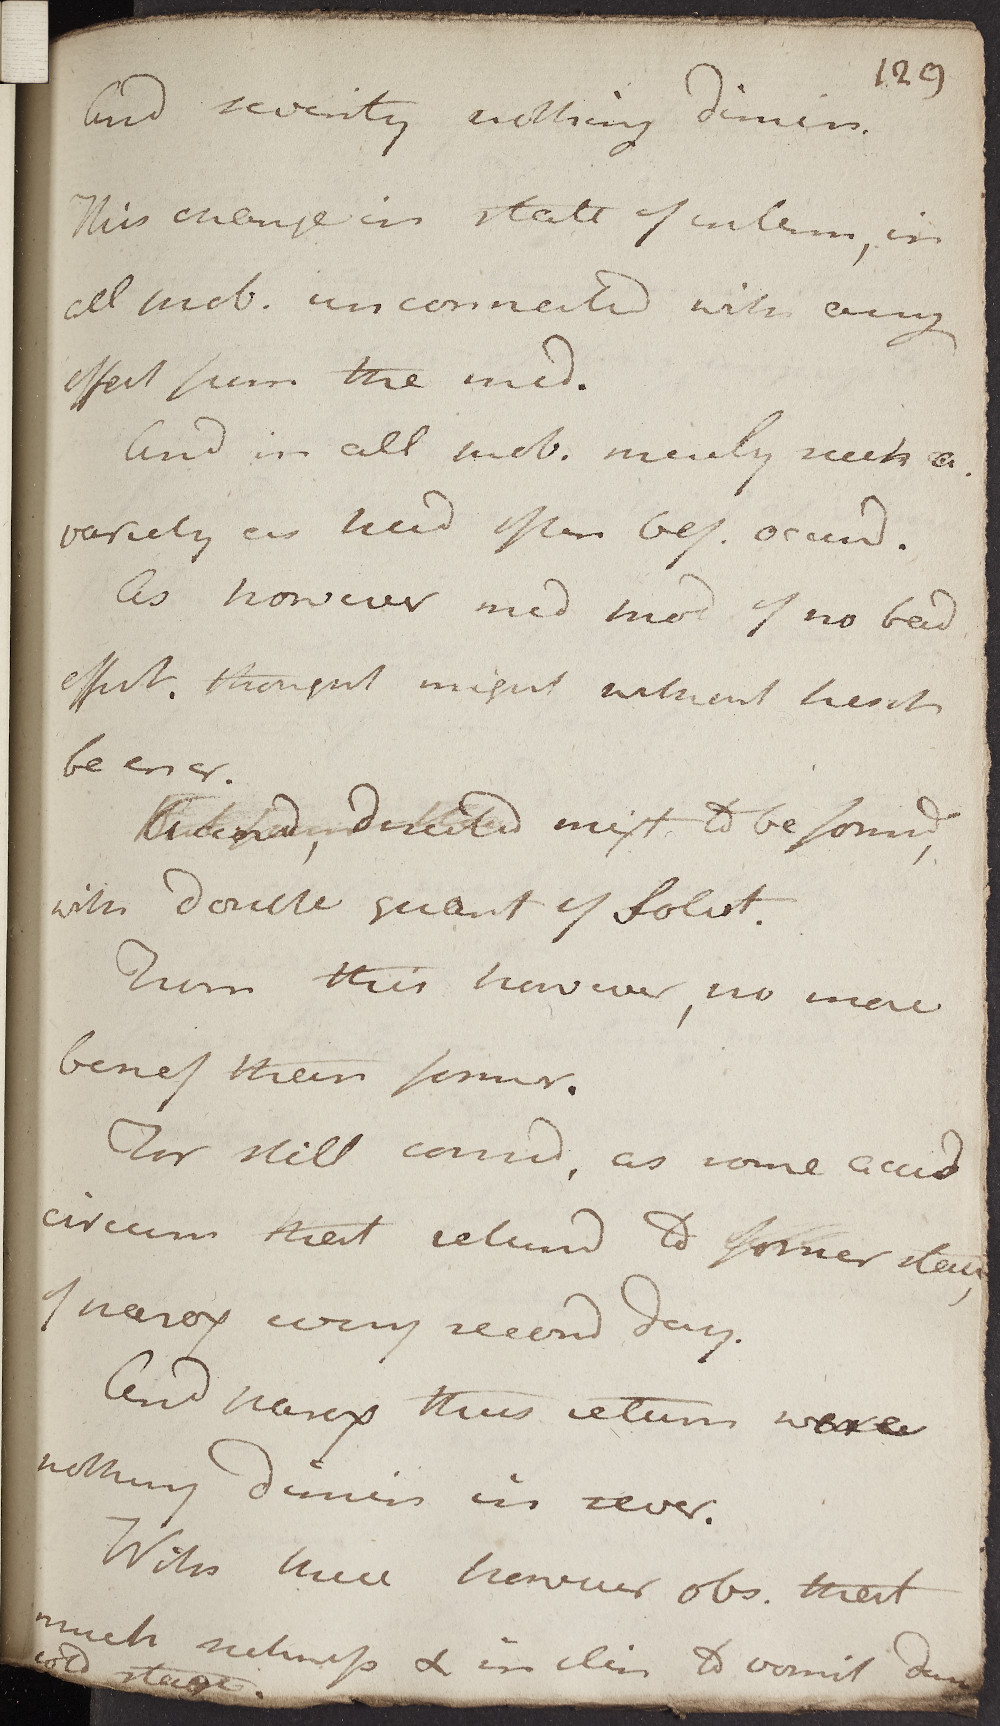 129
And severity nothing dimin.
This change in state of interm, in
all prob. unconnected with any
effect from the med.
And in all prob. merely such a
variety as had often bef. occurd.
As however med prod of no bad
effect. thought might without hesit
be encr.
directed mixt to be formd,
with double quant of Solut.
From this however, no more
benef than former.
For still contind, as some accid
circum that returnd to former state,
of parox every second day.
And parox thus return were
nothing dimin in sever.
With these however obs. that
much sickness & inclin to vomit dur
cold stage.